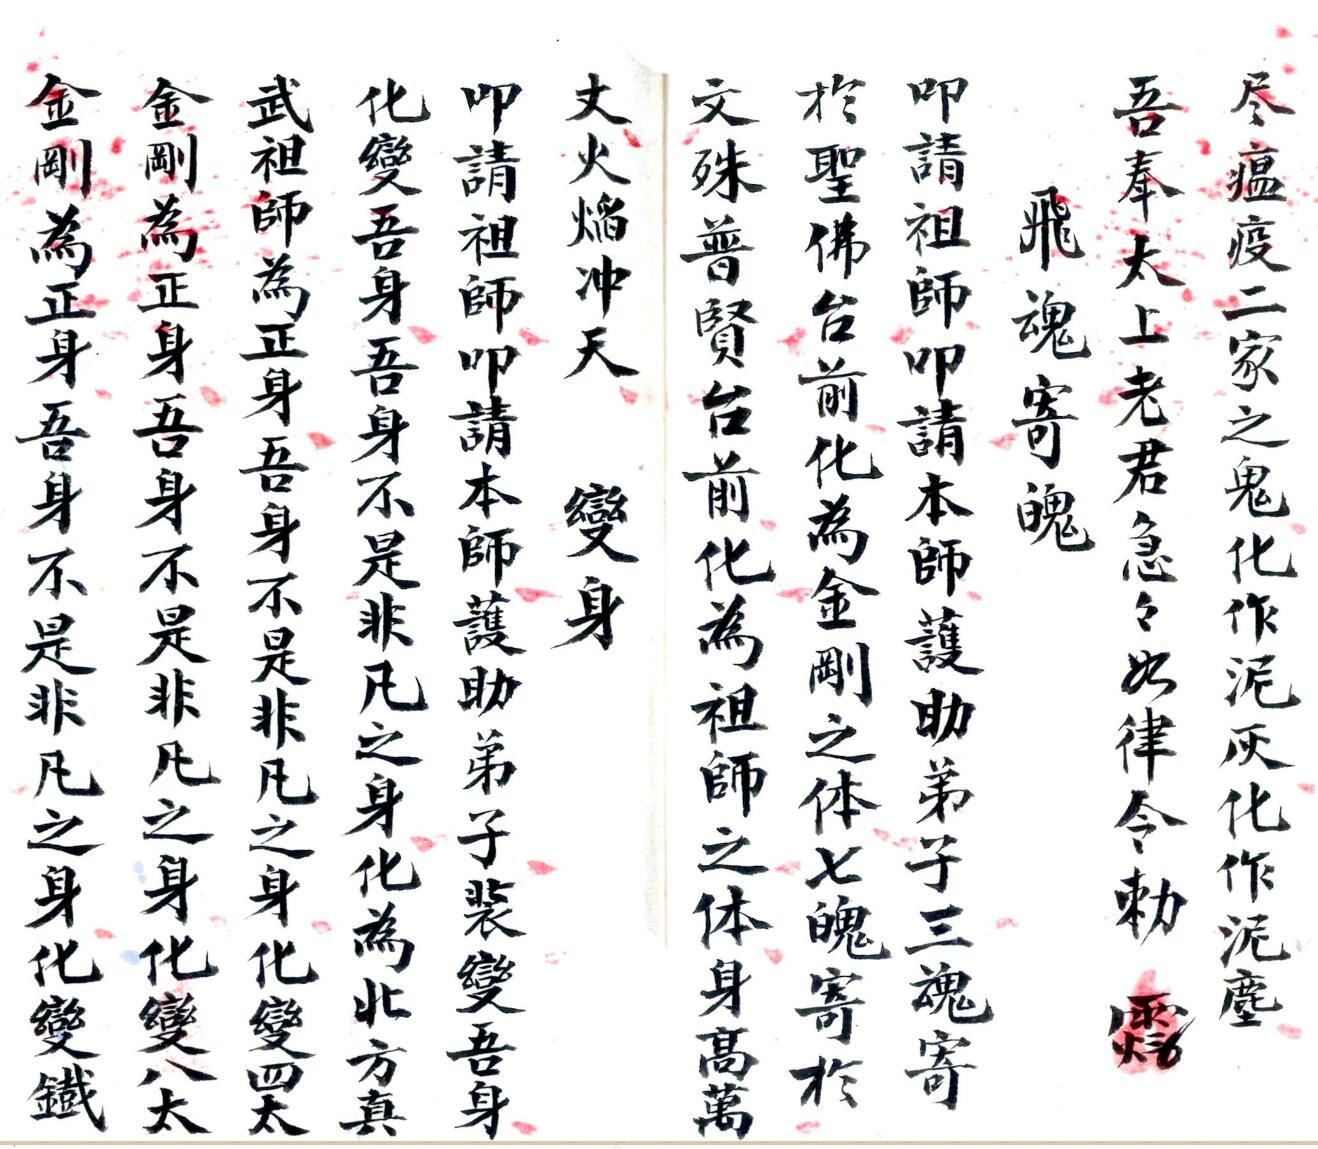 尽瘟疫二家之鬼化作泥灰化作泥塵
吾奉太上老君急々如律令勅
飛魂寄魄
叩請祖師叩請本師護助弟子三魂寄
於聖佛台前化為金剛之体七魄寄於
文殊普賢台前化為祖師之体身高萬
丈火焰冲天 變身
叩請祖師叩請本師護助弟子裝變吾身
化變吾身吾身不是非凡之身化為北方真
武祖師為正身吾身不是非凡之身化變四太
金剛為正身吾身不是非凡之身化變八太
金剛為正身吾身不是非凡之身化變鐵